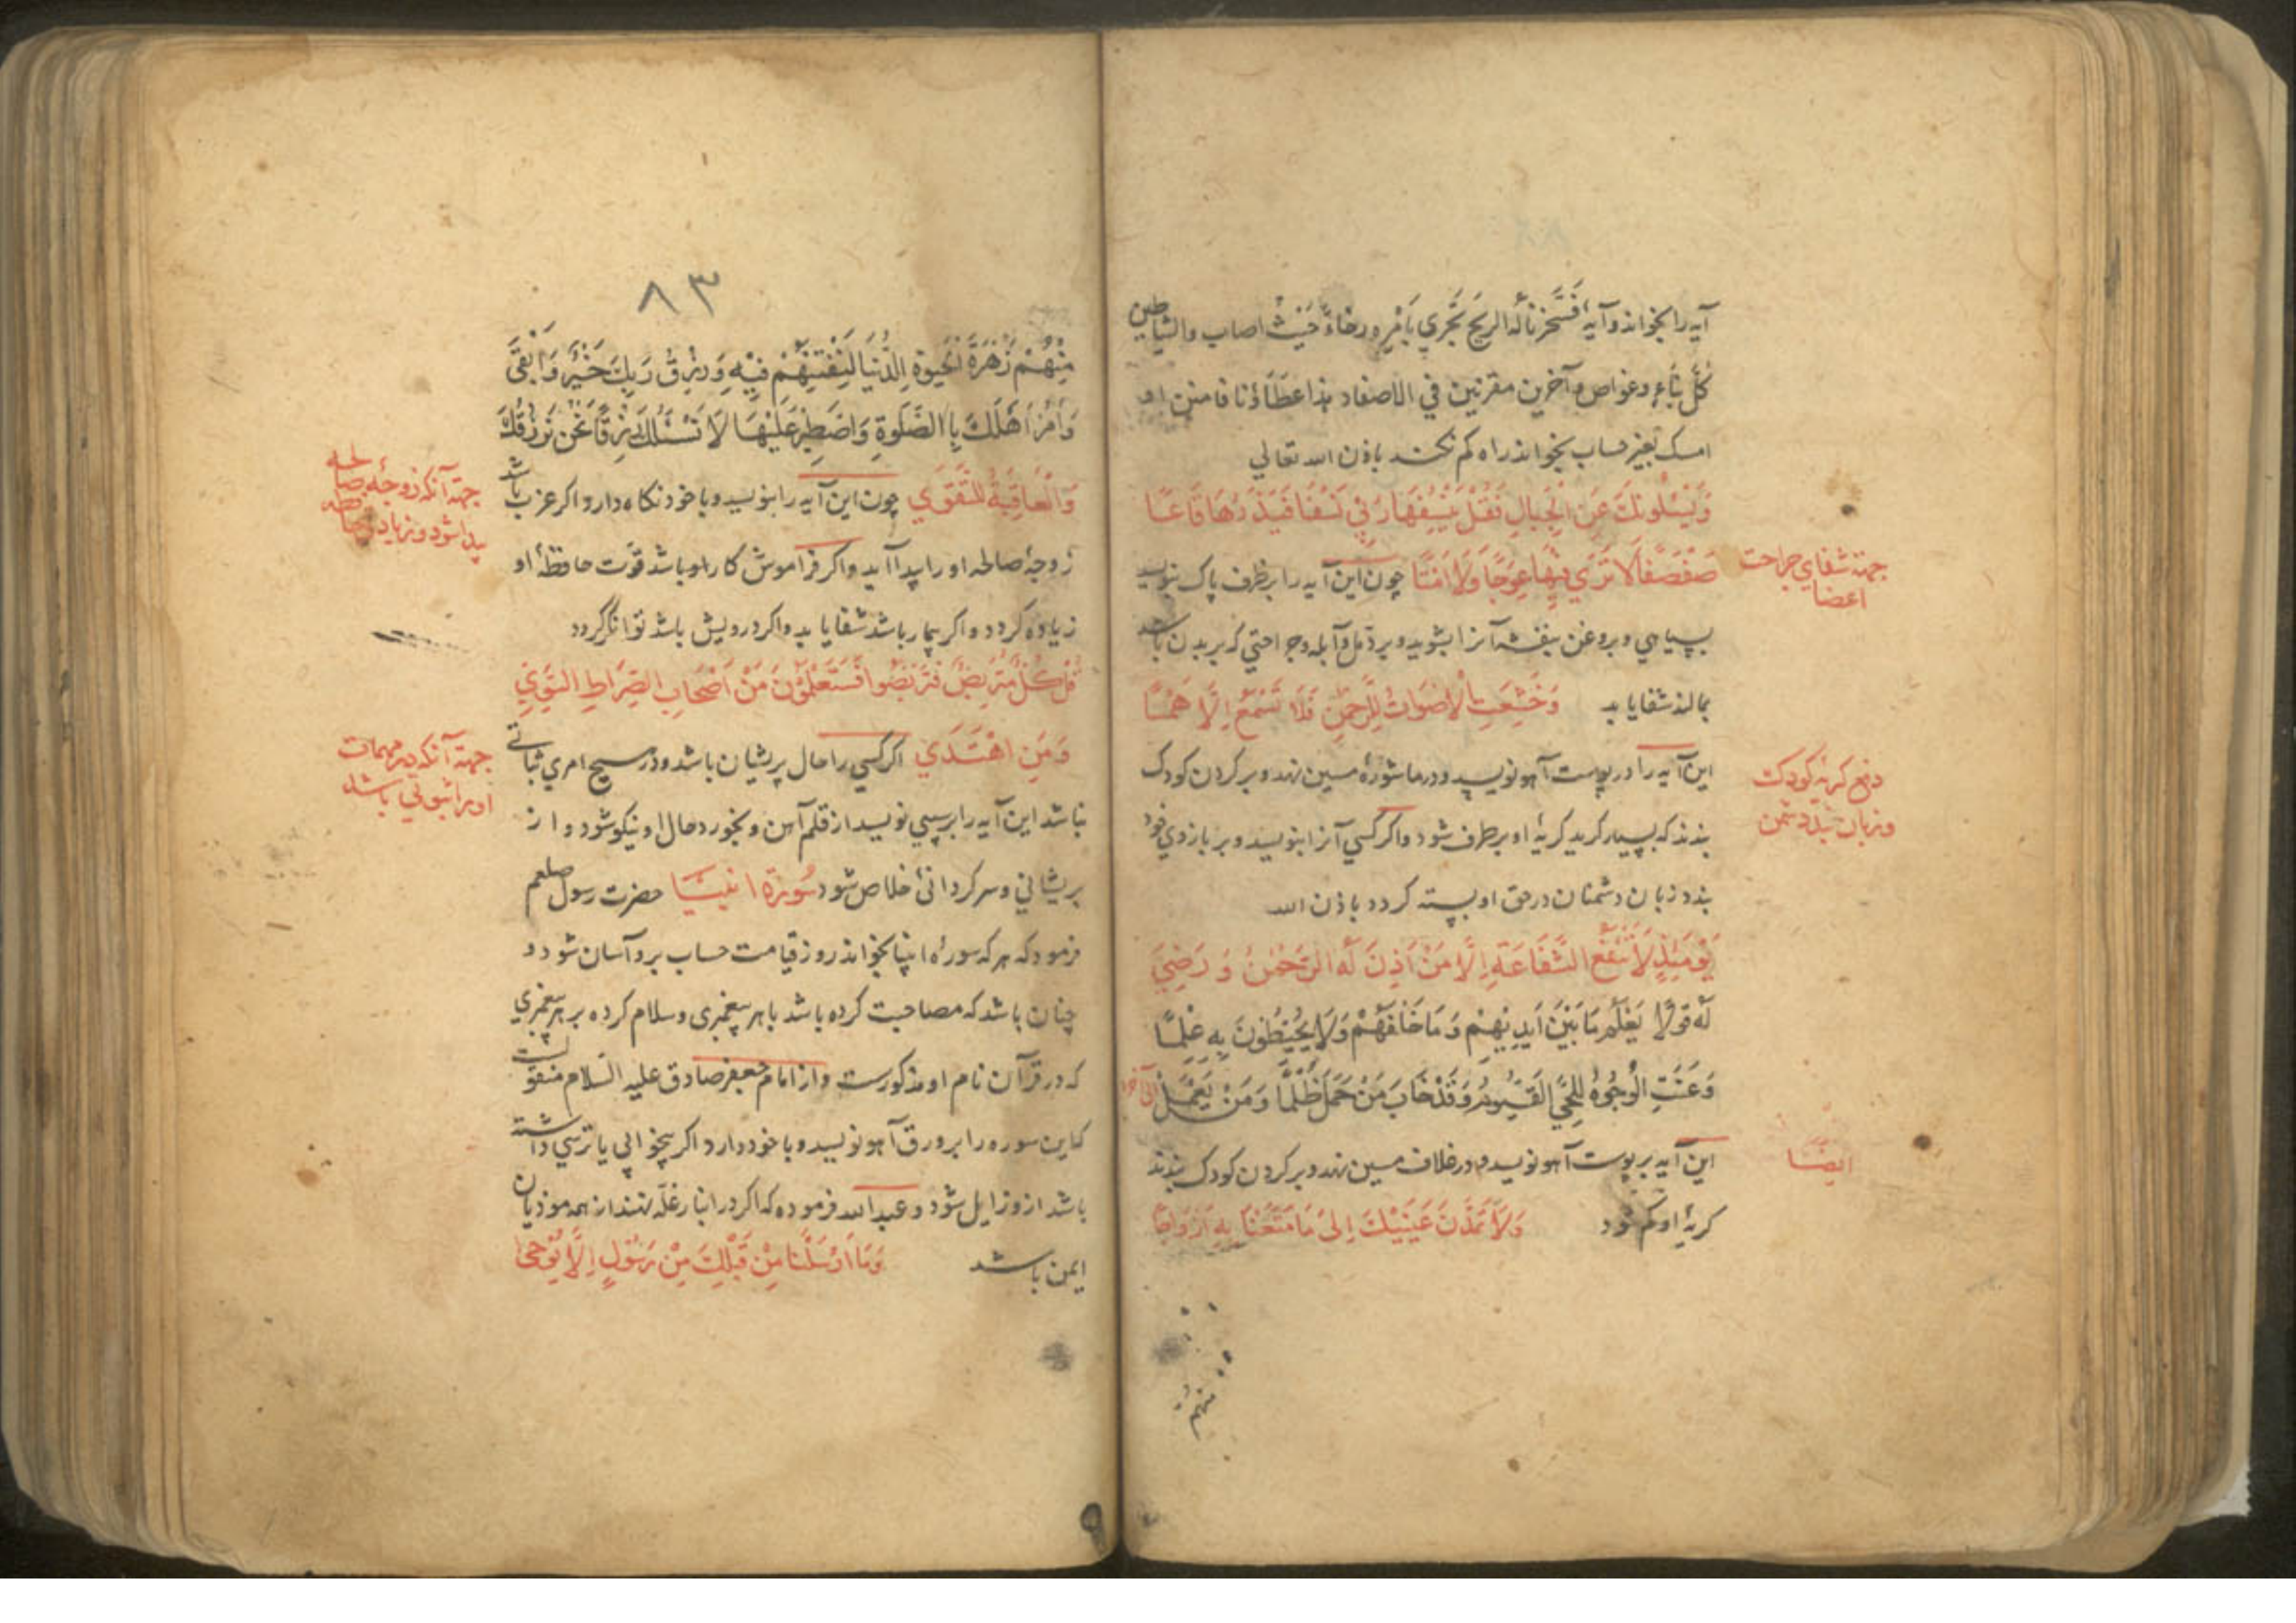 آیه را بخواند و آیهٔ فَسَخَّرنا لَهُ الریح تَجري بِاَمْرِه رخاءً حَیْثُ اصاب والشیاطین
کُلَّ بَنّاءٍ وغواص وآخرین مقرنین في الاصفاد هذا عطاؤنا فامنن او
امسک بغیر حساب بخواند راه کم نکند باذن الله تعالی
وَیَسْئَلُونَكَ عَنِ الْجِبالِ فَقُلْ یَنْسِفُهَا رَبّي نَسْفًا فَیَذَرُهَا قَاعًا
صَفْصَفًا لَا تَرَي فِیْهَا عِوَجًا وَلَا اَمْتًا چون این آیه را بر ظرف پاک بنویسد
جهتة شفاي جراحت
اعضا
بسیاهي وبروغن بنفشه آنرا بشوید وبر دمل وآبله وجراحتي که بر بدن باشد
بمالد شفا یابد وَخَشَعَتِ الْاَصْوَاتُ لِلرَّحْمٰنِ فَلَا تَسْمَعُ اِلَّا هَمْسًا
این آیه را در پوست آهو نویسد ودر ماشورهٔ مسین نهد وبر کردن کودک
دفع کریهٔ کودک
وزبان بند دشمن
بندند که بسیار کرید کریهٔ او برطرف شود واکر کسي آنرا بنویسد وبر بازوي خود
بندد زبان دشمنان در حق او بسته کردد باذن الله
یَوْمَئِذٍ لَا تَنْفَعُ الشَّفَاعَةُ اِلَّا مَنْ اَذِنَ لَهُ الرَّحْمٰنُ وَرَضِيَ
لَهُ قَوْلًا یَعْلَمُ مَا بَیْنَ اَیْدِیْهِمْ وَمَا خَلْفَهُمْ وَلَا یُحِیْطُوْنَ بِهِ عِلْمًا
وَعَنَتِ الْوُجُوْهُ لِلْحَيِّ الْقَیُّومِ وَقَدْ خَابَ مَنْ حَمَلَ ظُلْمًا وَمَنْ یَعْمَلْ الی آخره
این آیه بر پوست آهو نویسد ودر غلاف مسین نهد وبر کردن کودک بندند
ایضًا
کریهٔ او کم شود وَلَا تَمُدَّنَّ عَیْنَیْكَ اِلیٰ مَا مَتَّعْنَا بِهِ اَزْوَاجًا
منهم
٨٣
مِنْهُمْ زَهْرَةَ الْحَیٰوةِ الدُّنْیَا لِنَفْتِنَهُمْ فِیْهِ وَرِزْقُ رَبِّكَ خَیْرٌ وَاَبْقَی
وَأْمُرْ اَهْلَكَ بِالصَّلٰوةِ وَاصْطَبِرْ عَلَیْهَا لَا نَسْئَلُكَ رِزْقًا نَحْنُ نَرْزُقُكَ
وَالْعَاقِبَةُ لِلتَّقْوَي چون این آیه را بنویسد وبا خود نکاه دارد اکر عزب باشد
جهتة آنکه زوجهٔ صالحه
پیدا شود وزیادتي حافظه
زوجهٔ صالحه اورا پیدا آید واکر فراموش کار او باشد قوّت حافظهٔ او
زیاده کردد واکر بیمار باشد شفا یابد واکر درویش باشد توانکر کردد
قُلْ کُلٌّ مُتَرَبِّصٌ فَتَرَبَّصُوا فَسَتَعْلَمُوْنَ مَنْ اَصْحَابُ الصِّرَاطِ السَّوِيِّ
وَمَنِ اهْتَدَي اکر کسي را حال پریشان باشد ودر هیچ امري ثباتي
جهتة آنکه در مهمات
اورا ثبوتي باشد
نباشد این آیه را بر سیبي نویسد از قلم آهن وبخورد حال او نیکو شود واز
پریشاني وسرکردانیٔ خلاص شود سُورَة انبیا حضرت رسول صلعم
فرمود که هر که سورهٔ انبیا بخواند روز قیامت حساب برو آسان شود و
چنان باشد که مصاحبت کرده باشد با هر پیغمبری وسلام کرده بر هر پیغمبري
که در قرآن نام او مذکورست واز امام جعفر صادق علیه السّلام منقولست
که این سوره را بر ورق آهو نویسد وبا خود دارد اکر بیخوابي یا ترسي داشته
باشد ازو زایل شود وعبد الله فرموده که اکر در انبار غلّه نهند از همه موذیان
ایمن باشد وَمَا اَرْسَلْنَا مِنْ قَبْلِكَ مِنْ رَسُوْلٍ اِلَّا یُوْحیٰ